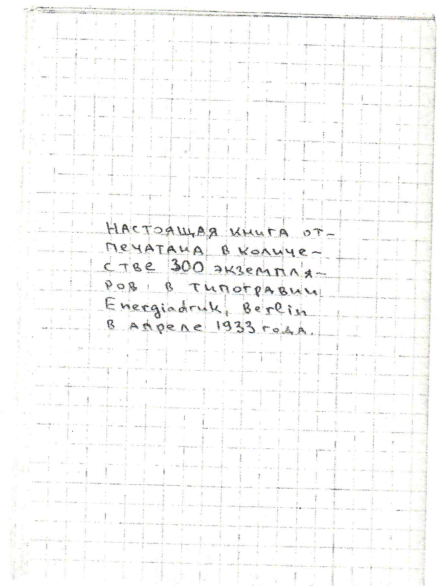 НАСТОЯЩАЯ КНИГА ОТ-
ПЕЧАТАНА В КОЛИЧЕ-
СТВЕ 300 ЭКЗЕМПЛЯ-
РОВ В ТИПОГРАВИИ
Energiadruk, Berlin
В АПРЕЛЕ 1933 ГОДА.